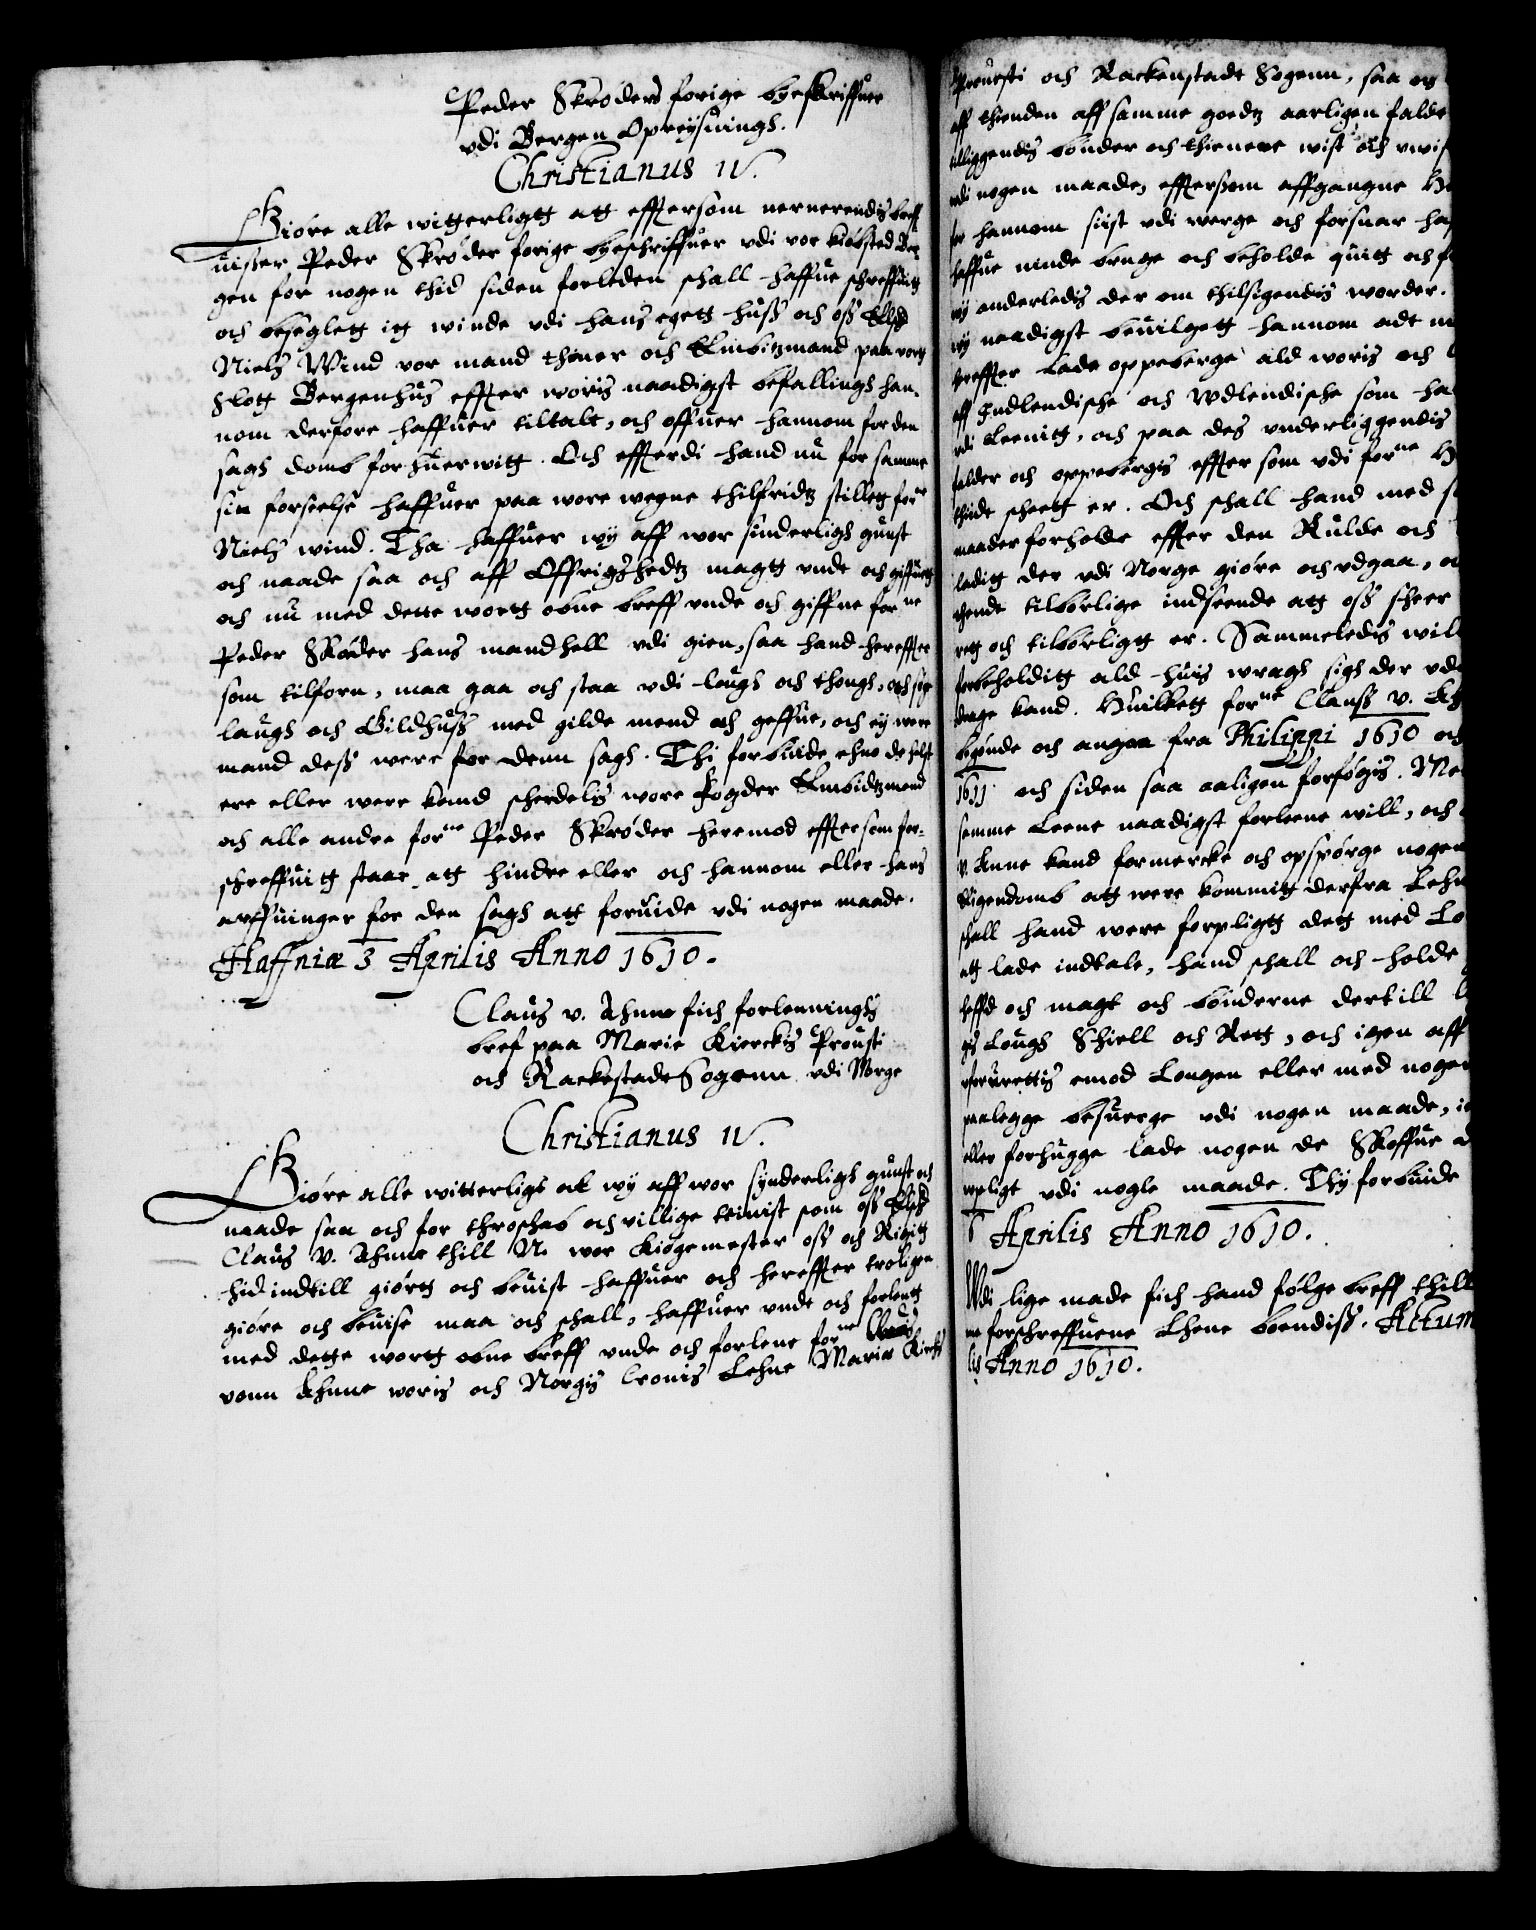 Peder Skrøders forige byeskriffuer
vdi Bergen Opreysnings.
Christianus IV.
Giøre alle witterligtt att efftersom neruerendis breff
uisser Peder Skrøder forige byeschriffuer vdi vor kiøbsted Ber¬
gen for nogen thid siden forleden schall haffue schreffuitt
och beseglett itt winde vdi hans egett huss och oss Elsk
Niels Wind vor mand thiener och Embitzmand paa vort
slott Bergenhus effter woris naadigst befallings han¬
nom derfore haffuer tiltalt, och offuer hannom for den
sags domb forhuerwitt. Och effterdi hand nu for samme
sin forseelse haffuer paa wore wegne thilfridtz stillett forne
Niels wind. Tha haffuer wy aff wor sunderligh gunst
och naade saa och aff Offrigshedtz magtt vnde och giffuett
och nu med dette wortt obne breff vnde och giffue forne
Peder Skrøder hans mandhell vdi gien, saa hand hereffter
som tilforn, maa gaa och staa vdi laugh och thingh, och sige
laugh och Gildhuss med gilde mend och geffue, och ey were
mand dess were for denn sagh. Thi forbiude ehuo de helst
ere eller were kand scherdelis wore fogder Embidtzmend
och alle andre forne Peder Skrøder heremod efftersom for¬
schreffuitt staar att hindre eller och hannom eller hans
arffuinger for den sagh att foruide vdi nogen maade.
Haffniæ 3 Aprilis Anno 1610.
Claus v. Ahnne fich forlennings
bref paa Marie Kierckis Prousti
och Rackestade Sogenn vdi Norge
Christianus IV.
Giøre alle witterligt at wy aff wor synderligh gunst och
naade saa och for throschab och villige tienist som oss Elsk
Claus V. Ahnne thill N. wor Kiøgemester oss och Rigitt
hid indtill giørtt och beuist haffuer och hereffter trolige
giøre och beuise maa och schall, haffuer vndt och forlentt
med dette wortt obne breff vnde och forlene forne Claus
vonn Ahnne woris och Norgis Cronis Lehne Mariæ Kircks
Prouesti och Rackenstade Sogenn, saa og
aff thienden aff samme goedtz aarligen falde
tilliggendis bønder och thienere wist och vwis
vdi nogen maade, efftersom affgangne
for hannom sidst vdi werge och forsuar haf
haffue niude bruge och beholde quitt och f
wy anderledis der om thilsigendis worder.
wy naadigst beuilgett hannom adt m
hereffter lade oppeberge ald woris och
aff Indlendische och Wdlendische som ha
vdi Leenitt, och paa des vnderliggendis
falder och oppebergis efftersom vdi forne H
thiide scheett er. Och schall hand med s
maader forholde effter den Rulde och
laditt der vdi Norge giøre och vdgaa, o
hende tilbørlige indseende att oss scheer
rett och tilbørligtt er. Sammeledis will
forbeholditt ald huis wragh sigh der vdi
drage kand. Huilkett forne Clauss v. Ah
begynde och angaa fra Philippi 1610 och
1611 och siden saa aaligen forføgis. Me
samme Leene naadigst forleene will, och
v. Anne kand formercke och opspørge nogen
Eigendomb att were kommitt derfra Lehn
schall hand were forpligtt dett med Lo
att lade indtale, hand schall och holde
heffd och magt och bønderne dertill
gis Lough Skiell och Rett, och igen aff
forurettis emod Lougen eller med nogen
paalegge besuerge vdi nogen maade, i
eller forhugge lade nogen de Skoffue
wpligt vdi nogle maade. Thy forbiude
6 Aprilis Anno 1610.
Wdi lige made fich hand følge breff thill
ne forschreffuene Lhene boendiss. Actum
lis Anno 1610.